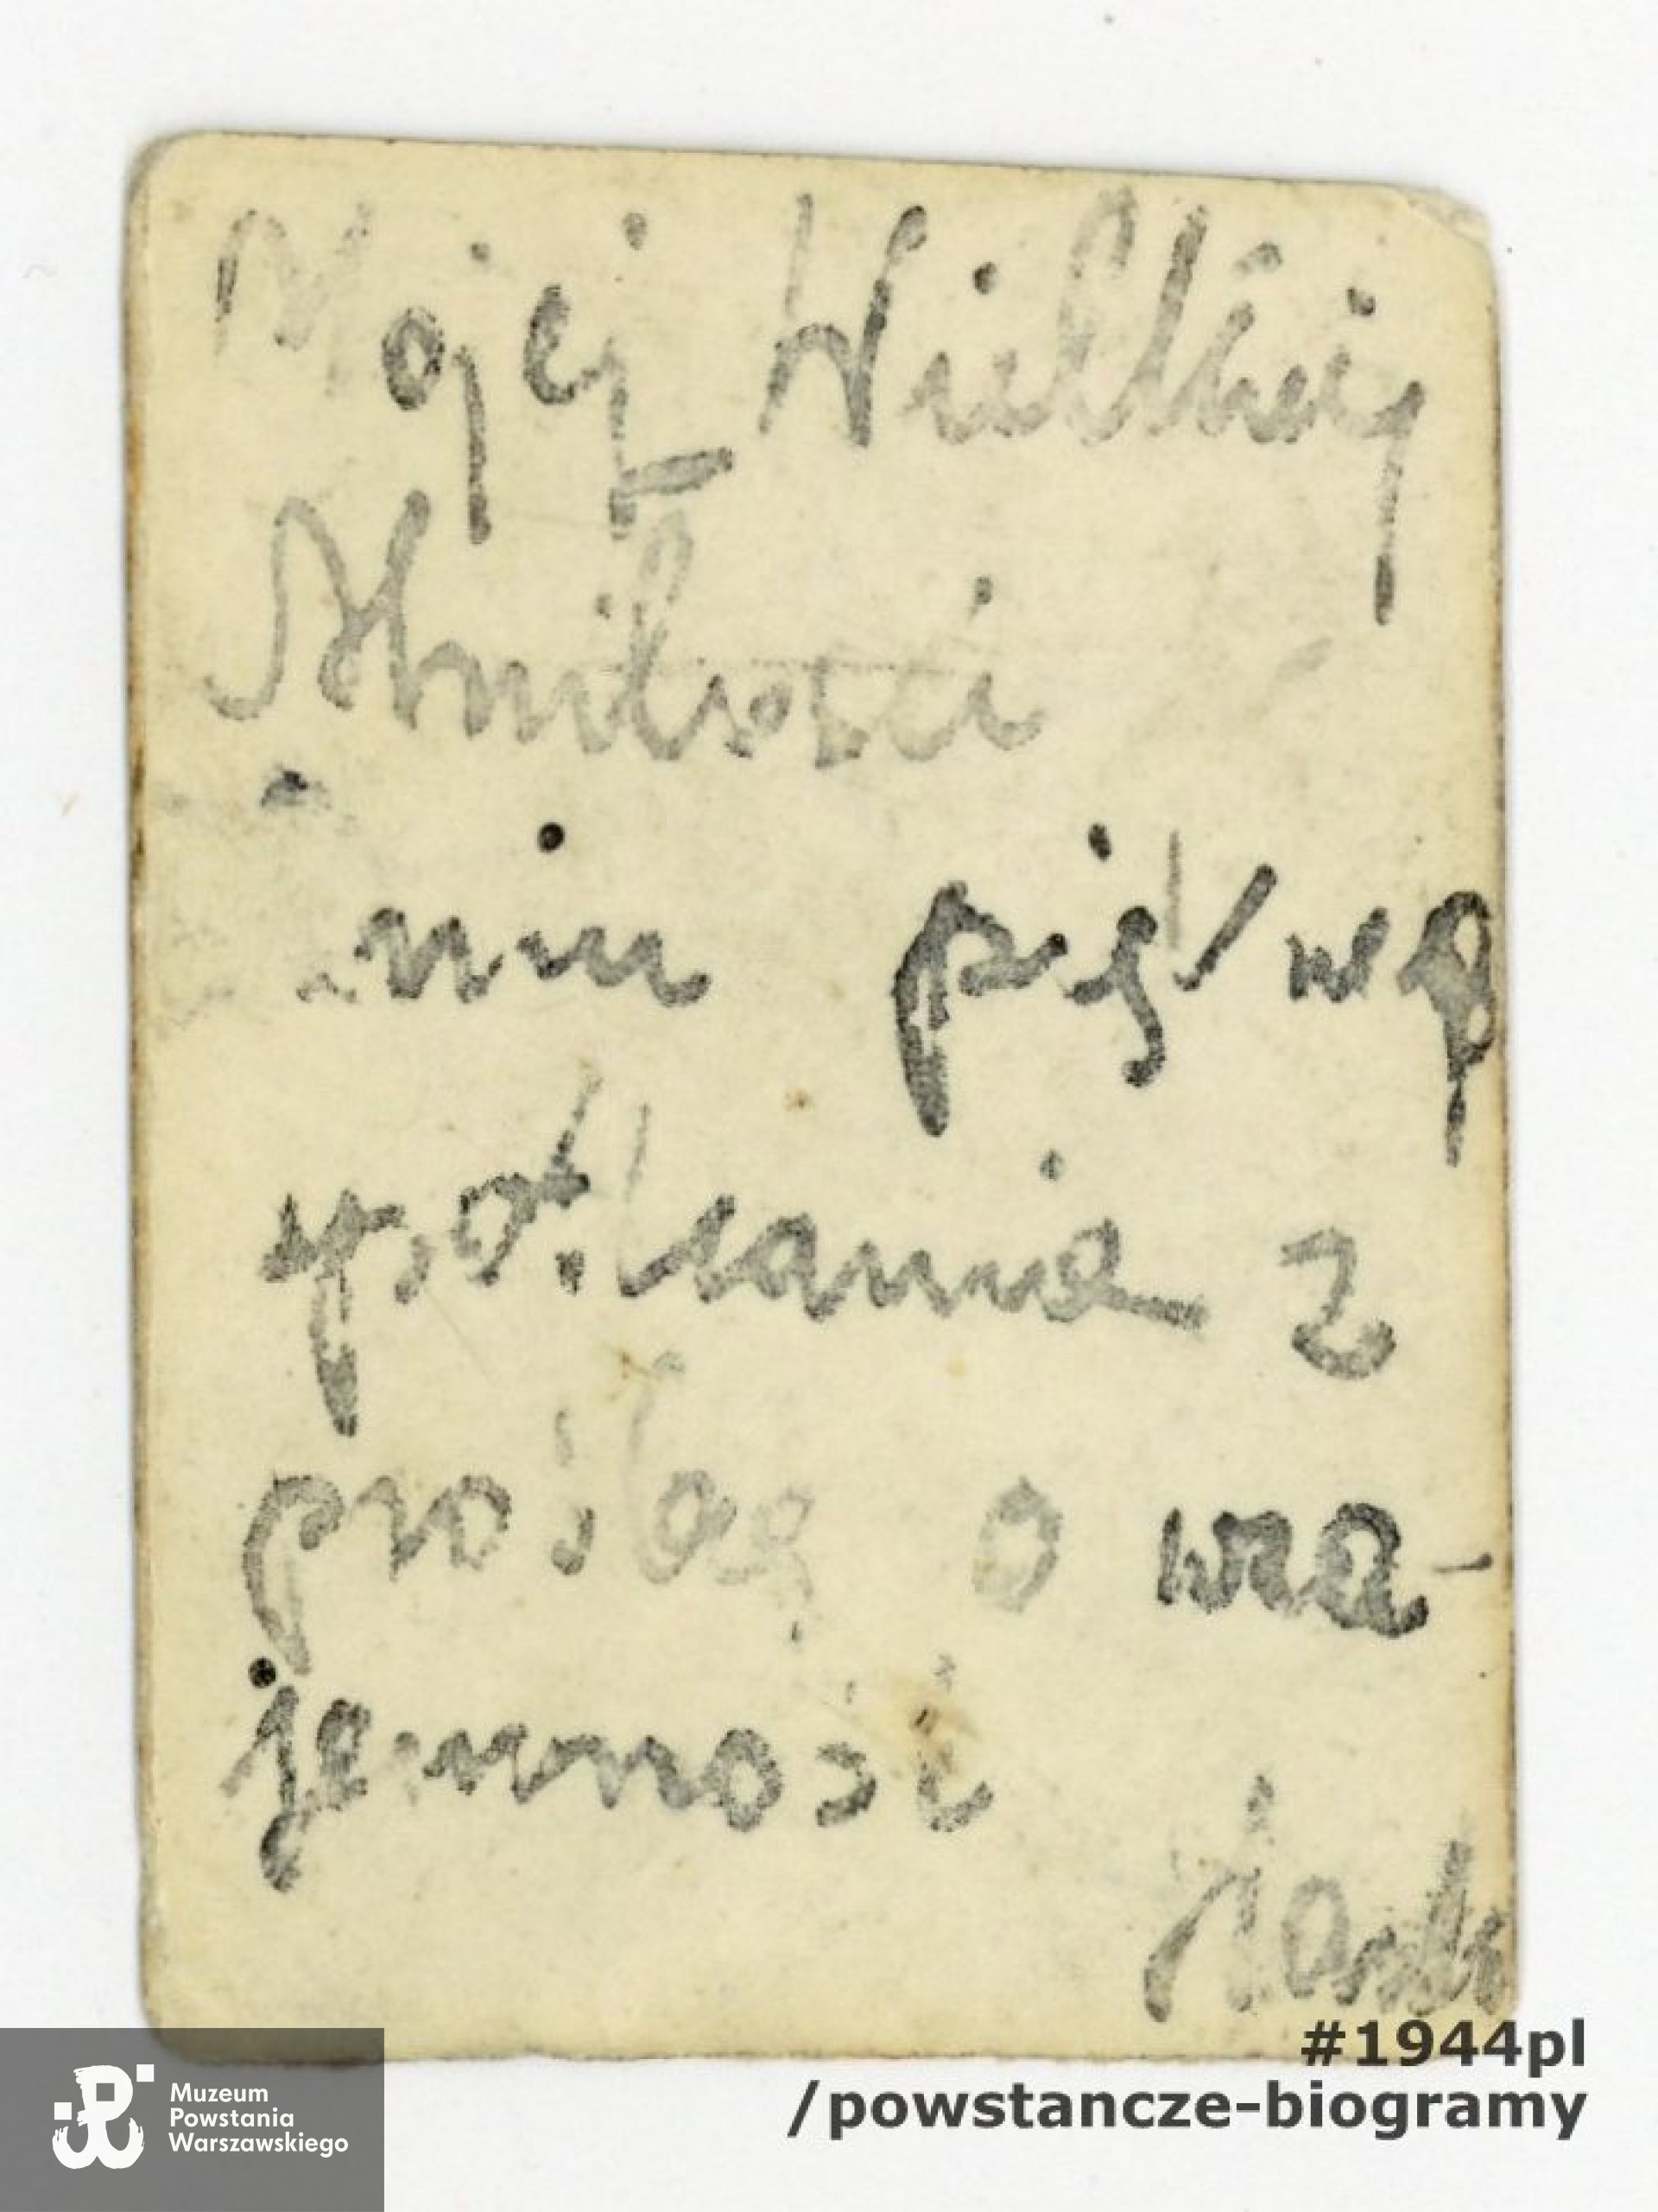 Mojej Wielkiej
Miłości
spotkania z
prośbą o wza-
jemność
#1944pl
/powstancze-biogramy
Muzeum
Powstania
Warszawskiego